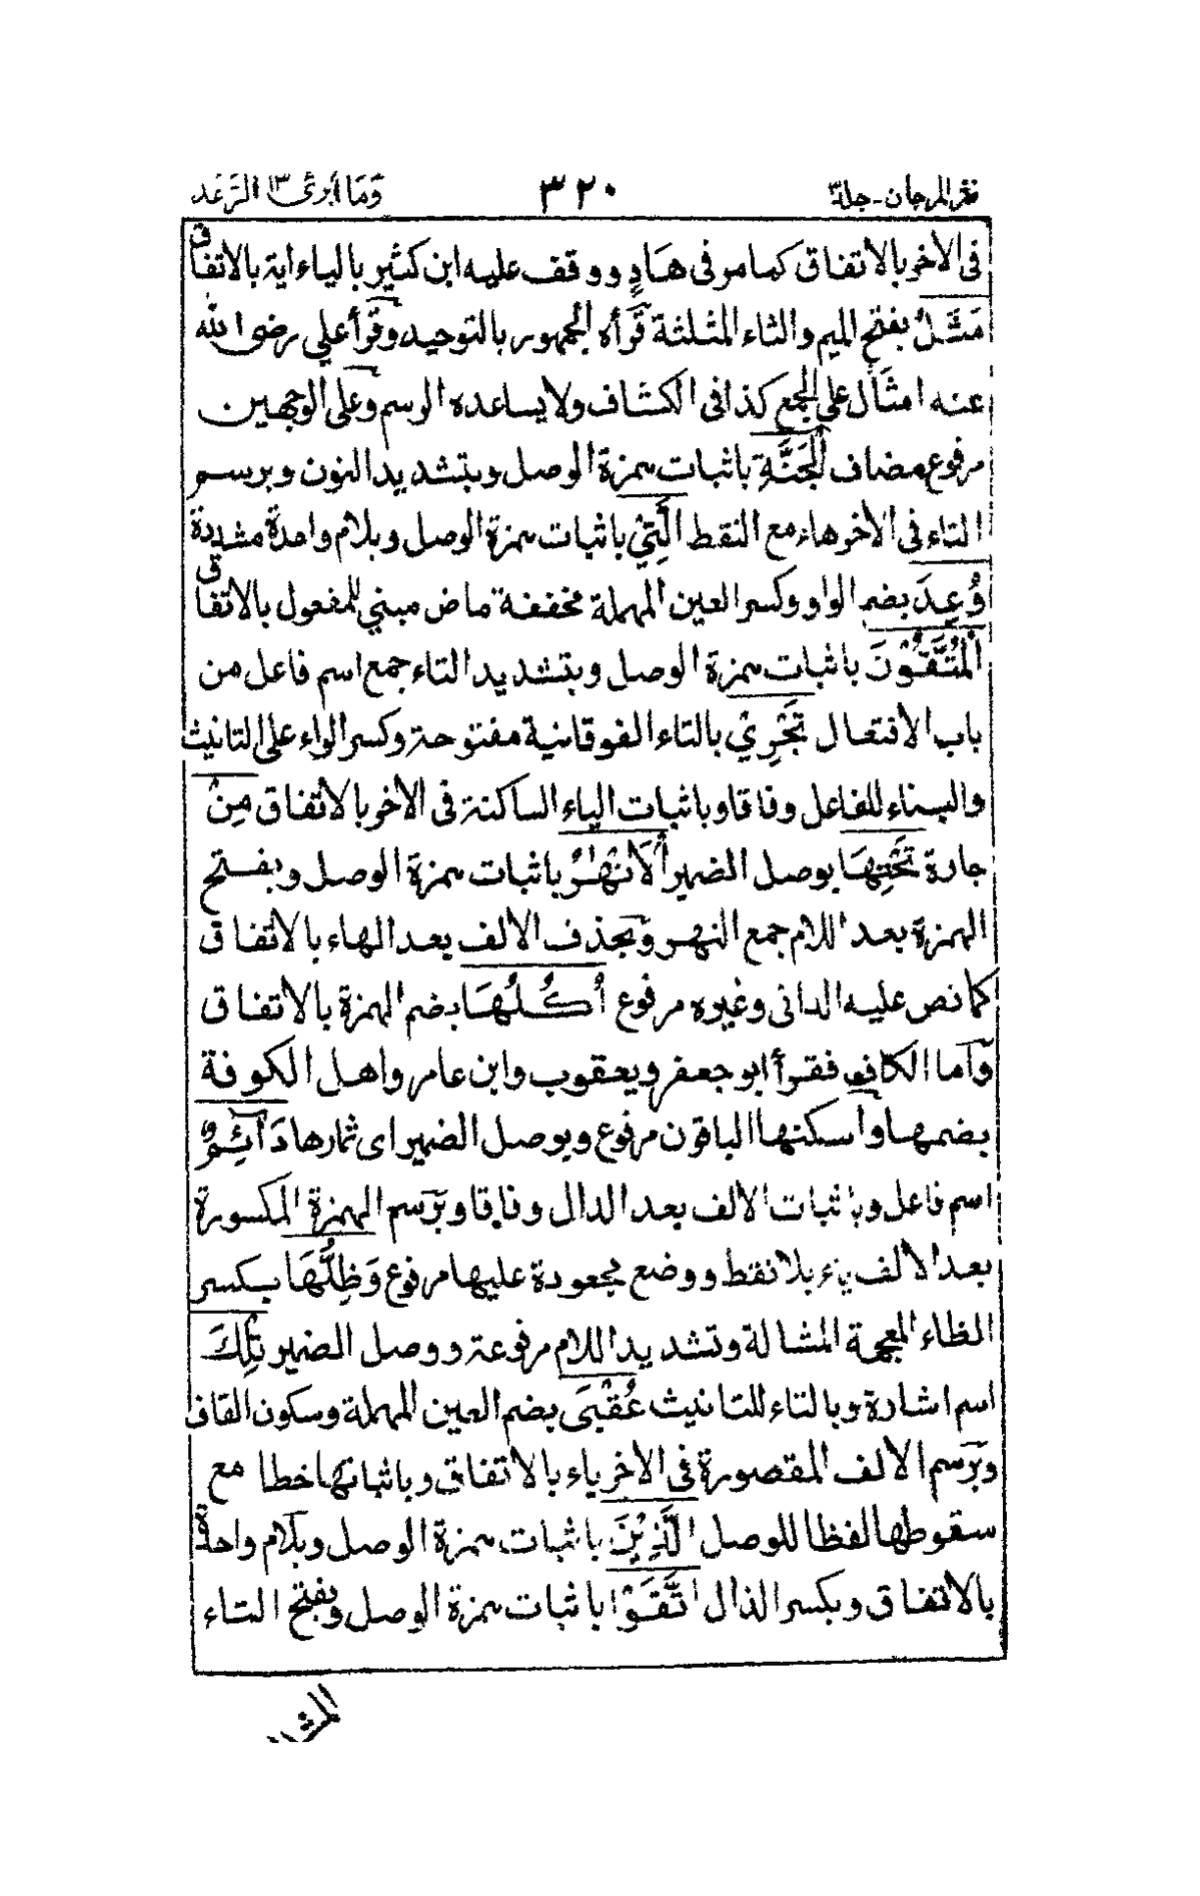 نثر المرجان - جلد ٣ ٣٢٠ وَمَا أبرئ ١٣ الرَّعْد
فى الاخر بالاتفاق كما مر فى هَادٍ ووقف عليه ابن كثير بالياء اية بالاتفاق
مَثَلُ بفتح الميم والثاء المثلثة قرأه الجمهور بالتوحيد وقرأ علي رضى الله
عنه امثال على الجمع كذا فى الكشاف ولا يساعده الرسم وعلى الوجهين
مرفوع مضاف الْجَنَّةِ باثبات همزة الوصل وبتشديد النون وبرسم
التاء فى الاخر هاء مع النقط الَّتِيْ باثبات همزة الوصل وبلام واحدة مشددة
وُعِدَ بضم الواو وكسر العين المهملة مخففة ماض مبني للمفعول بالاتفاق
الْمُتَّقُوْنَ باثبات همزة الوصل وبتشديد التاء جمع اسم فاعل من
باب الافتعال تَجْرِيْ بالتاء الفوقانية مفتوحة وكسر الراء على التانيث
والبناء للفاعل وفاقا وباثبات الياء الساكنة فى الاخر بالاتفاق مِنْ
جارة تَحْتِهَا بوصل الضمير الْاَنْهٰرُ باثبات همزة الوصل وبفتح
الهمزة بعد اللام جمع النهر وبحذف الالف بعد الهاء بالاتفاق
كما نص عليه الدانى وغيره مرفوع أُكُلُهَا بضم الهمزة بالاتفاق
وَاَما الكاف فقرأ ابو جعفر ويعقوب وابن عامر واهل الكوفة
بضمها واسكنها الباقون مرفوع وبوصل الضمير اى ثمارها دَآئِمٌ
اسم فاعل وباثبات الالف بعد الدال وفاقا وبرسم الهمزة المكسورة
بعد الالف ياء بلا نقط ووضع مجعودة عليها مرفوع وَظِلُّهَا بكسر
الظاء المعجمة المشالة وتشديد اللام مرفوعة ووصل الضمير تِلْكَ
اسم اشارة وبالتاء للتانيث عُقْبَى بضم العين المهملة وسكون القاف
وبرسم الالف المقصورة فى الاخر ياء بالاتفاق وباثباتها خطا مع
سقوطها لفظا للوصل الَّذِيْنَ باثبات همزة الوصل وبلام واحدة
بالاتفاق وبكسر الذال اتَّقَوْا باثبات همزة الوصل وبفتح التاء